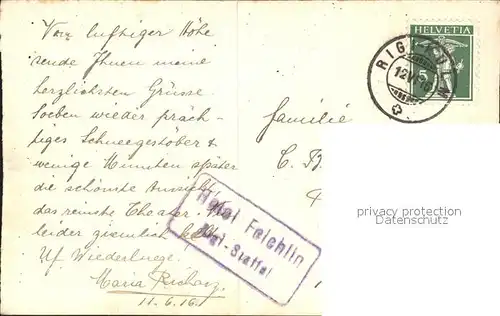 Von luftiger Höhe
sende Ihnen meine
herzlichsten Grüsse.
Soeben wieder präch-
tiges Schneegestöber &
wenige Minuten später
die schönste Aussicht
das reinste Theater.
leider ziemlich kalt.
Uf Wiederluege.
Maria
11.6.16.
Familie
C.
HELVETIA
5
RIGI-KULM
12.VI.16
Hotel Felchlin
Rigi-Staffel
privacy protection
Datenschutz